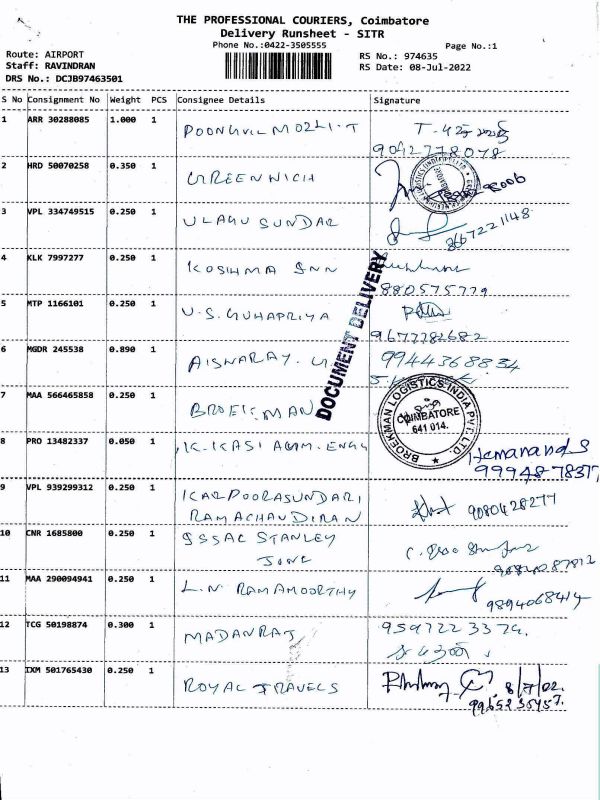 THE PROFESSIONAL COURIERS, Coimbatore
Delivery Runsheet - SITR
Phone No.:0422-3505555
Page No.:1
Route: AIRPORT
Staff: RAVINDRAN
DRS No.: DCJB97463501
RS No.: 974635
RS Date: 08-Jul-2022
S No Consignment No Weight PCS Consignee Details Signature
1 ARR 30288085 1.000 1 POONGUIL MOZLI.T
9042778078
2 HRD 50070258 0.350 1 GREENWICH
3 VPL 334749515 0.250 1 ULAGU SUNDAR
8667221148
4 KLK 7997277 0.250 1 KOSHMA INN
880575779
5 MTP 1166101 0.250 1 U.S.GUHAPRIYA
9677782682
6 MGDR 245538 0.890 1 AISWARAY.
9944368834
DOCUMENT DELIVERY
7 MAA 566465858 0.250 1 BROEK MAN
BROEKMAN LOGISTICS INDIA PVT. LTD.
COIMBATORE
641 014.
8 PRO 13482337 0.050 1 K.KASI AGAM. ENGG
Hemanand S
99948-78377
9 VPL 939299312 0.250 1 KARPOORASUNDARI
RAMACHANDIRAN
9080428277
10 CNR 1685800 0.250 1 ISSAC STANLEY
JONE
11 MAA 290094941 0.250 1 L.N RAMAMOORTHY
9894068414
12 TCG 50198874 0.300 1 MADANRAJ
9597223379.
13 IXM 501765430 0.250 1 ROYAL TRAVELS